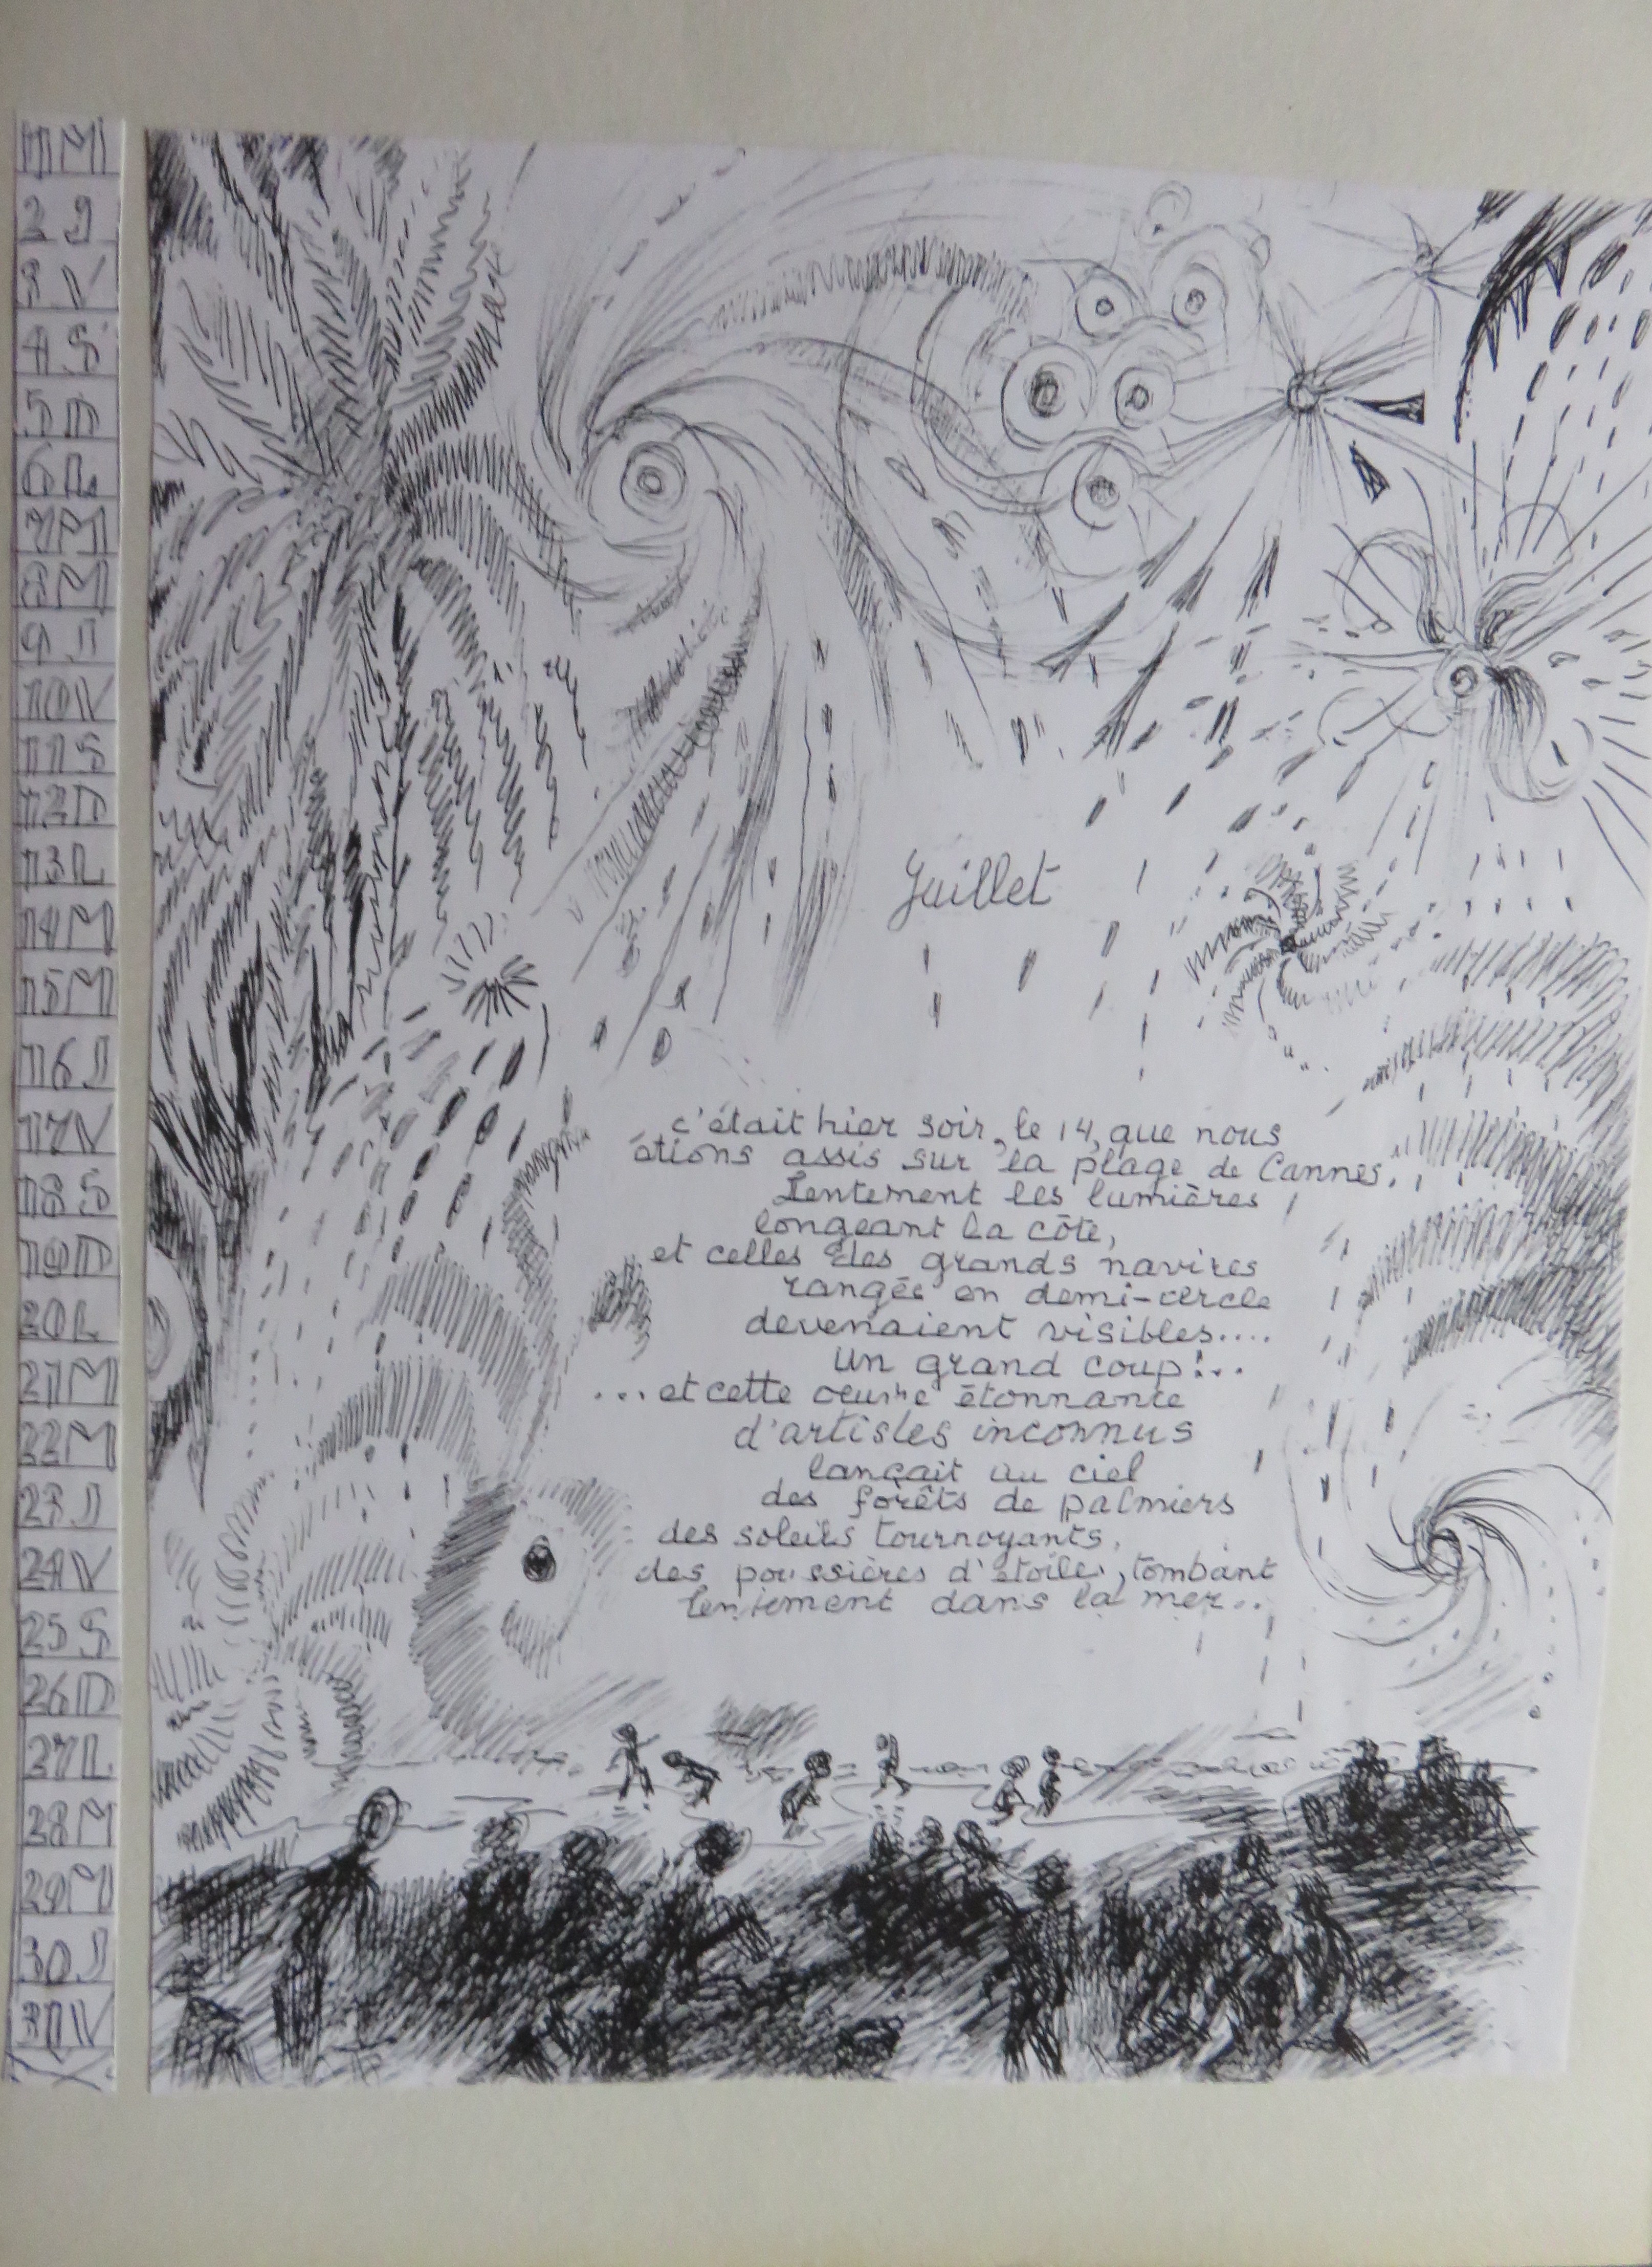 1 M
2 J
3 V
4 S
5 D
6 L
7 M
8 M
9 J
10 V
11 S
12 D
13 L
14 M
15 M
16 J
17 V
18 S
19 D
20 L
21 M
22 M
23 J
24 V
25 S
26 D
27 L
28 M
29 M
30 J
31 V
Juillet
c'était hier soir, le 14, que nous
étions assis sur la plage de Cannes.
Lentement les lumières
longeant la côte,
et celles des grands navires
rangés en demi-cercle
devenaient visibles....
Un grand coup!..
...et cette oeuvre étonnante
d'artistes inconnus
lançait au ciel
des forêts de palmiers
des soleils tournoyants,
des poussières d'étoiles, tombant
lentement dans la mer..